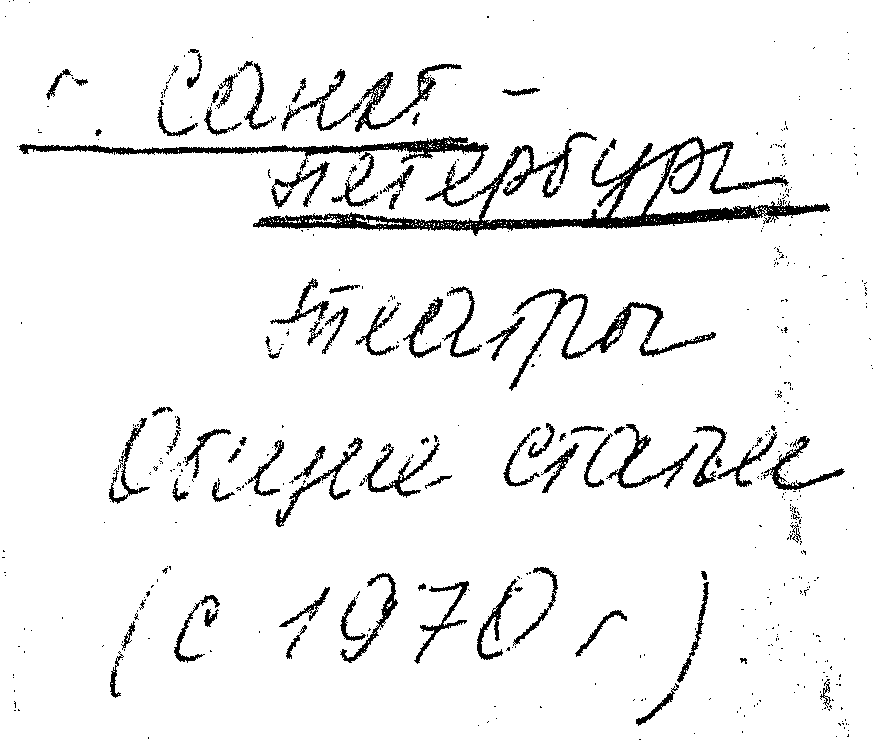 г. Санкт-
Петербург
Театры
Общие статьи
(с 1970 г)